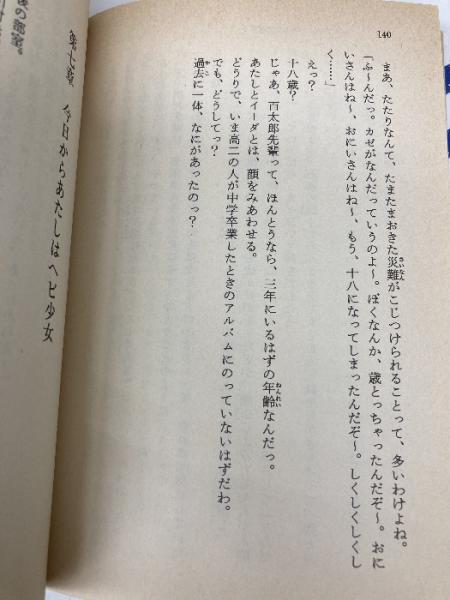 140
まあ、たたりなんて、たまたまおきた災難がこじつけられることって、多いわけよね。
「ふ～んだっ。カゼがなんだっていうのよ～。ぼくなんか、歳とっちゃったんだぞ～。おに
いさんはね～、おにいさんはね～、もう、十八になってしまったんだぞ～。しくしくしくし
く……」
えっ？
十八歳？
じゃあ、百太郎先輩って、ほんとうなら、三年にいるはずの年齢なんだっ。
あたしとイーダとは、顔をみあわせる。
どうりで、いま高二の人が中学卒業したときのアルバムにのっていないはずだわ。
でも、どうしてっ？
過去に一体、なにがあったのっ？
第七章　今日からあたしはヘビ少女
後の部室。